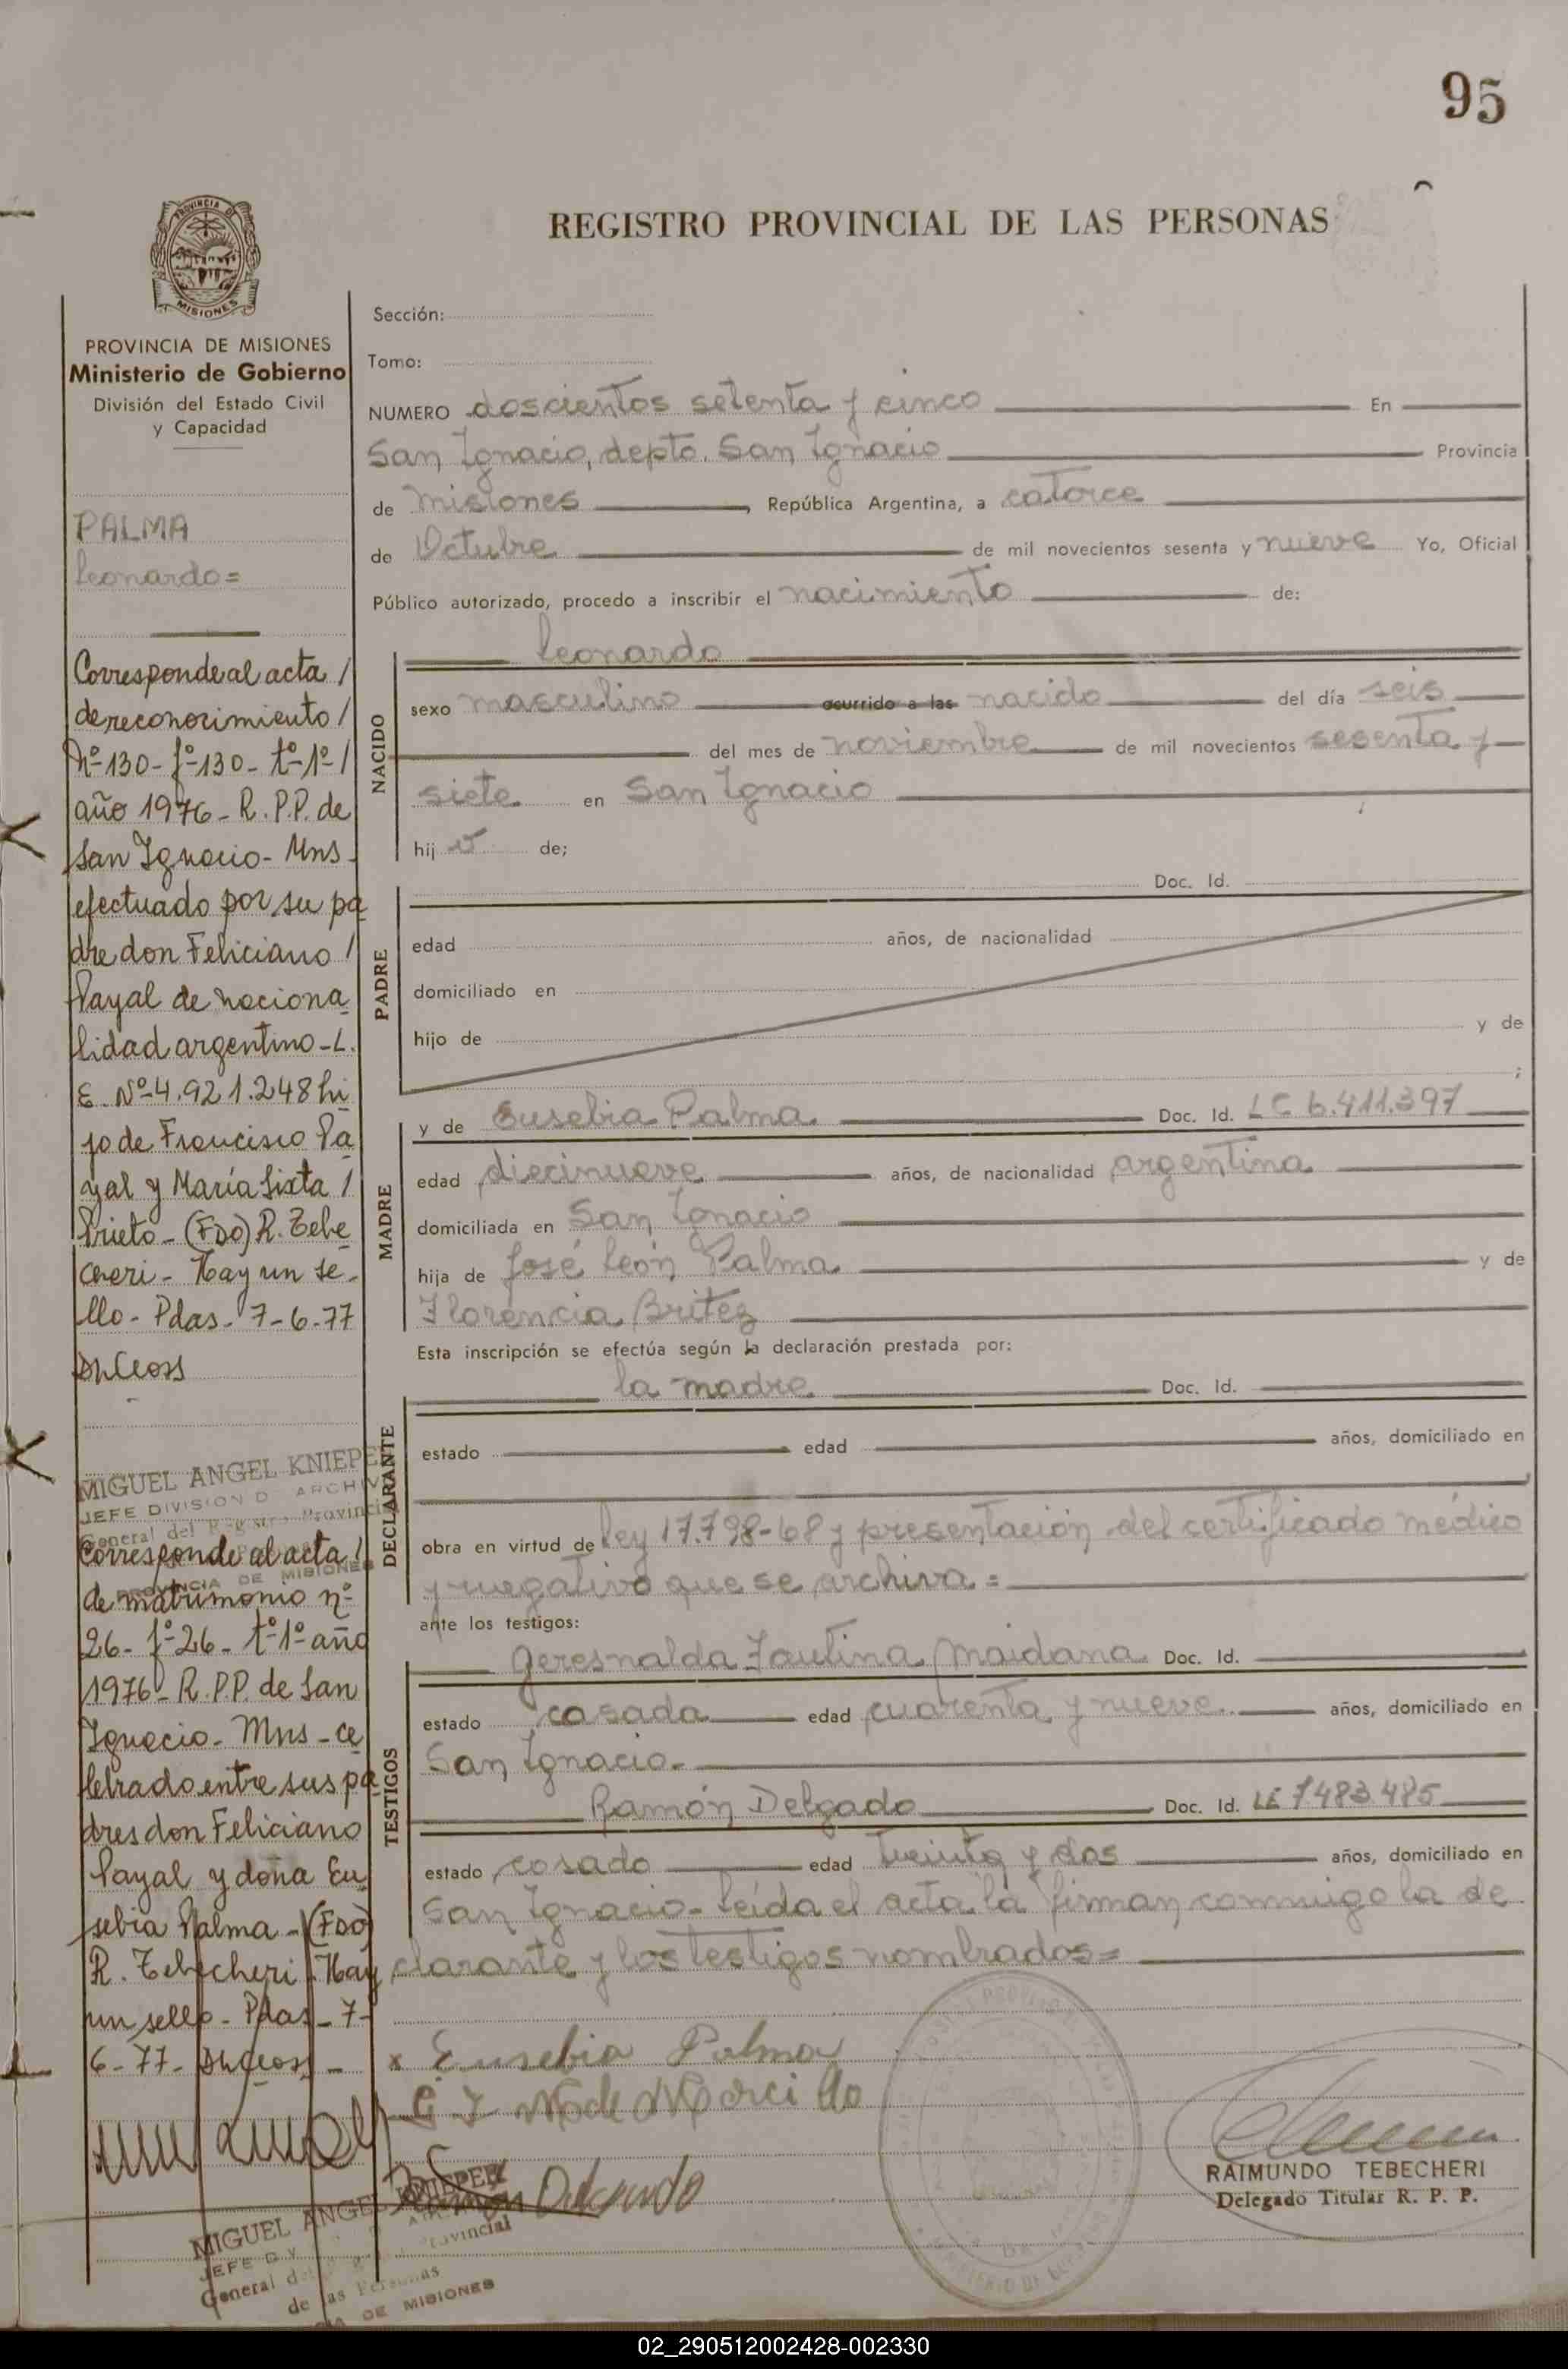 95
PROVINCIA DE
MISIONES
REGISTRO PROVINCIAL DE LAS PERSONAS
PROVINCIA DE MISIONES
Ministerio de Gobierno
División del Estado Civil
y Capacidad
PALMA
Leonardo=
Corresponde al acta /
de reconocimiento /
Nº 130 - fº 130 - tº 1º /
año 1976 - R.P.P. de
San Ignacio - Mns -
efectuado por su pa
dre don Feliciano /
Payal de naciona
lidad argentino - L.
E. Nº 4.921.248 hi
jo de Francisco Pa
yal y María Sixta /
Prieto - (FDO) R. Tebe
cheri - Hay un se-
llo - Pdas - 7-6-77
MIGUEL ANGEL KNIEPE
JEFE DIVISION D ARCHIV
General del Registro Provincial
PROVINCIA DE MISIONES
Corresponde al acta /
de matrimonio nº
26 - fº 26 - tº 1º año
1976 - R.P.P. de San
Ignacio - Mns - ce
lebrado entre sus pa
dres don Feliciano
Payal y doña Eu
sebia Palma - (FDO)
R. Tebecheri - Hay
un sello - Pdas - 7-
6-77-
Sección:
Tomo:
NUMERO doscientos setenta y cinco En
San Ignacio, depto. San Ignacio Provincia
de Misiones, República Argentina, a catorce
de Octubre de mil novecientos sesenta y nueve Yo, Oficial
Público autorizado, procedo a inscribir el nacimiento de:
NACIDO
Leonardo
sexo masculino ocurrido a las nacido del día seis
del mes de noviembre de mil novecientos sesenta y
siete en San Ignacio
hij o de;
PADRE
Doc. Id.
edad años, de nacionalidad
domiciliado en
hijo de y de
;
MADRE
y de Eusebia Palma Doc. Id. LC 6.411.397
edad diecinueve años, de nacionalidad argentina
domiciliada en San Ignacio
hija de José León Palma y de
Florencia Britez
Esta inscripción se efectúa según la declaración prestada por:
DECLARANTE
la madre Doc. Id.
estado edad años, domiciliado en
obra en virtud de ley 17.798-68 y presentación del certificado médico
y negativo que se archiva =
ante los testigos:
TESTIGOS
Geresnalda Faulina Maidana Doc. Id.
estado casada edad cuarenta y nueve años, domiciliado en
San Ignacio.
Ramón Delgado Doc. Id. LE 7483.485
estado casado edad treinta y dos años, domiciliado en
San Ignacio - Leída el acta la firman conmigo la de
clarante y los testigos nombrados=
x Eusebia Palma
RAIMUNDO TEBECHERI
Delegado Titular R. P. P.
MIGUEL ANGEL KNIEPER
General
de las Personas
DE MISIONES
02_290512002428-002330